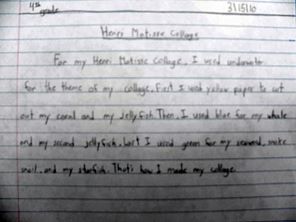 4th grade
3/15/10
Henri Matisse Collage
For my Henri Matisse Collage, I used underwater
for the theme of my collage. First I used yellow paper to cut
out my coral and my jellyfish. Then, I used blue for my whale
and my second jellyfish. Last I used green for my seaweed, snake
snail, and my starfish. That's how I made my collage.